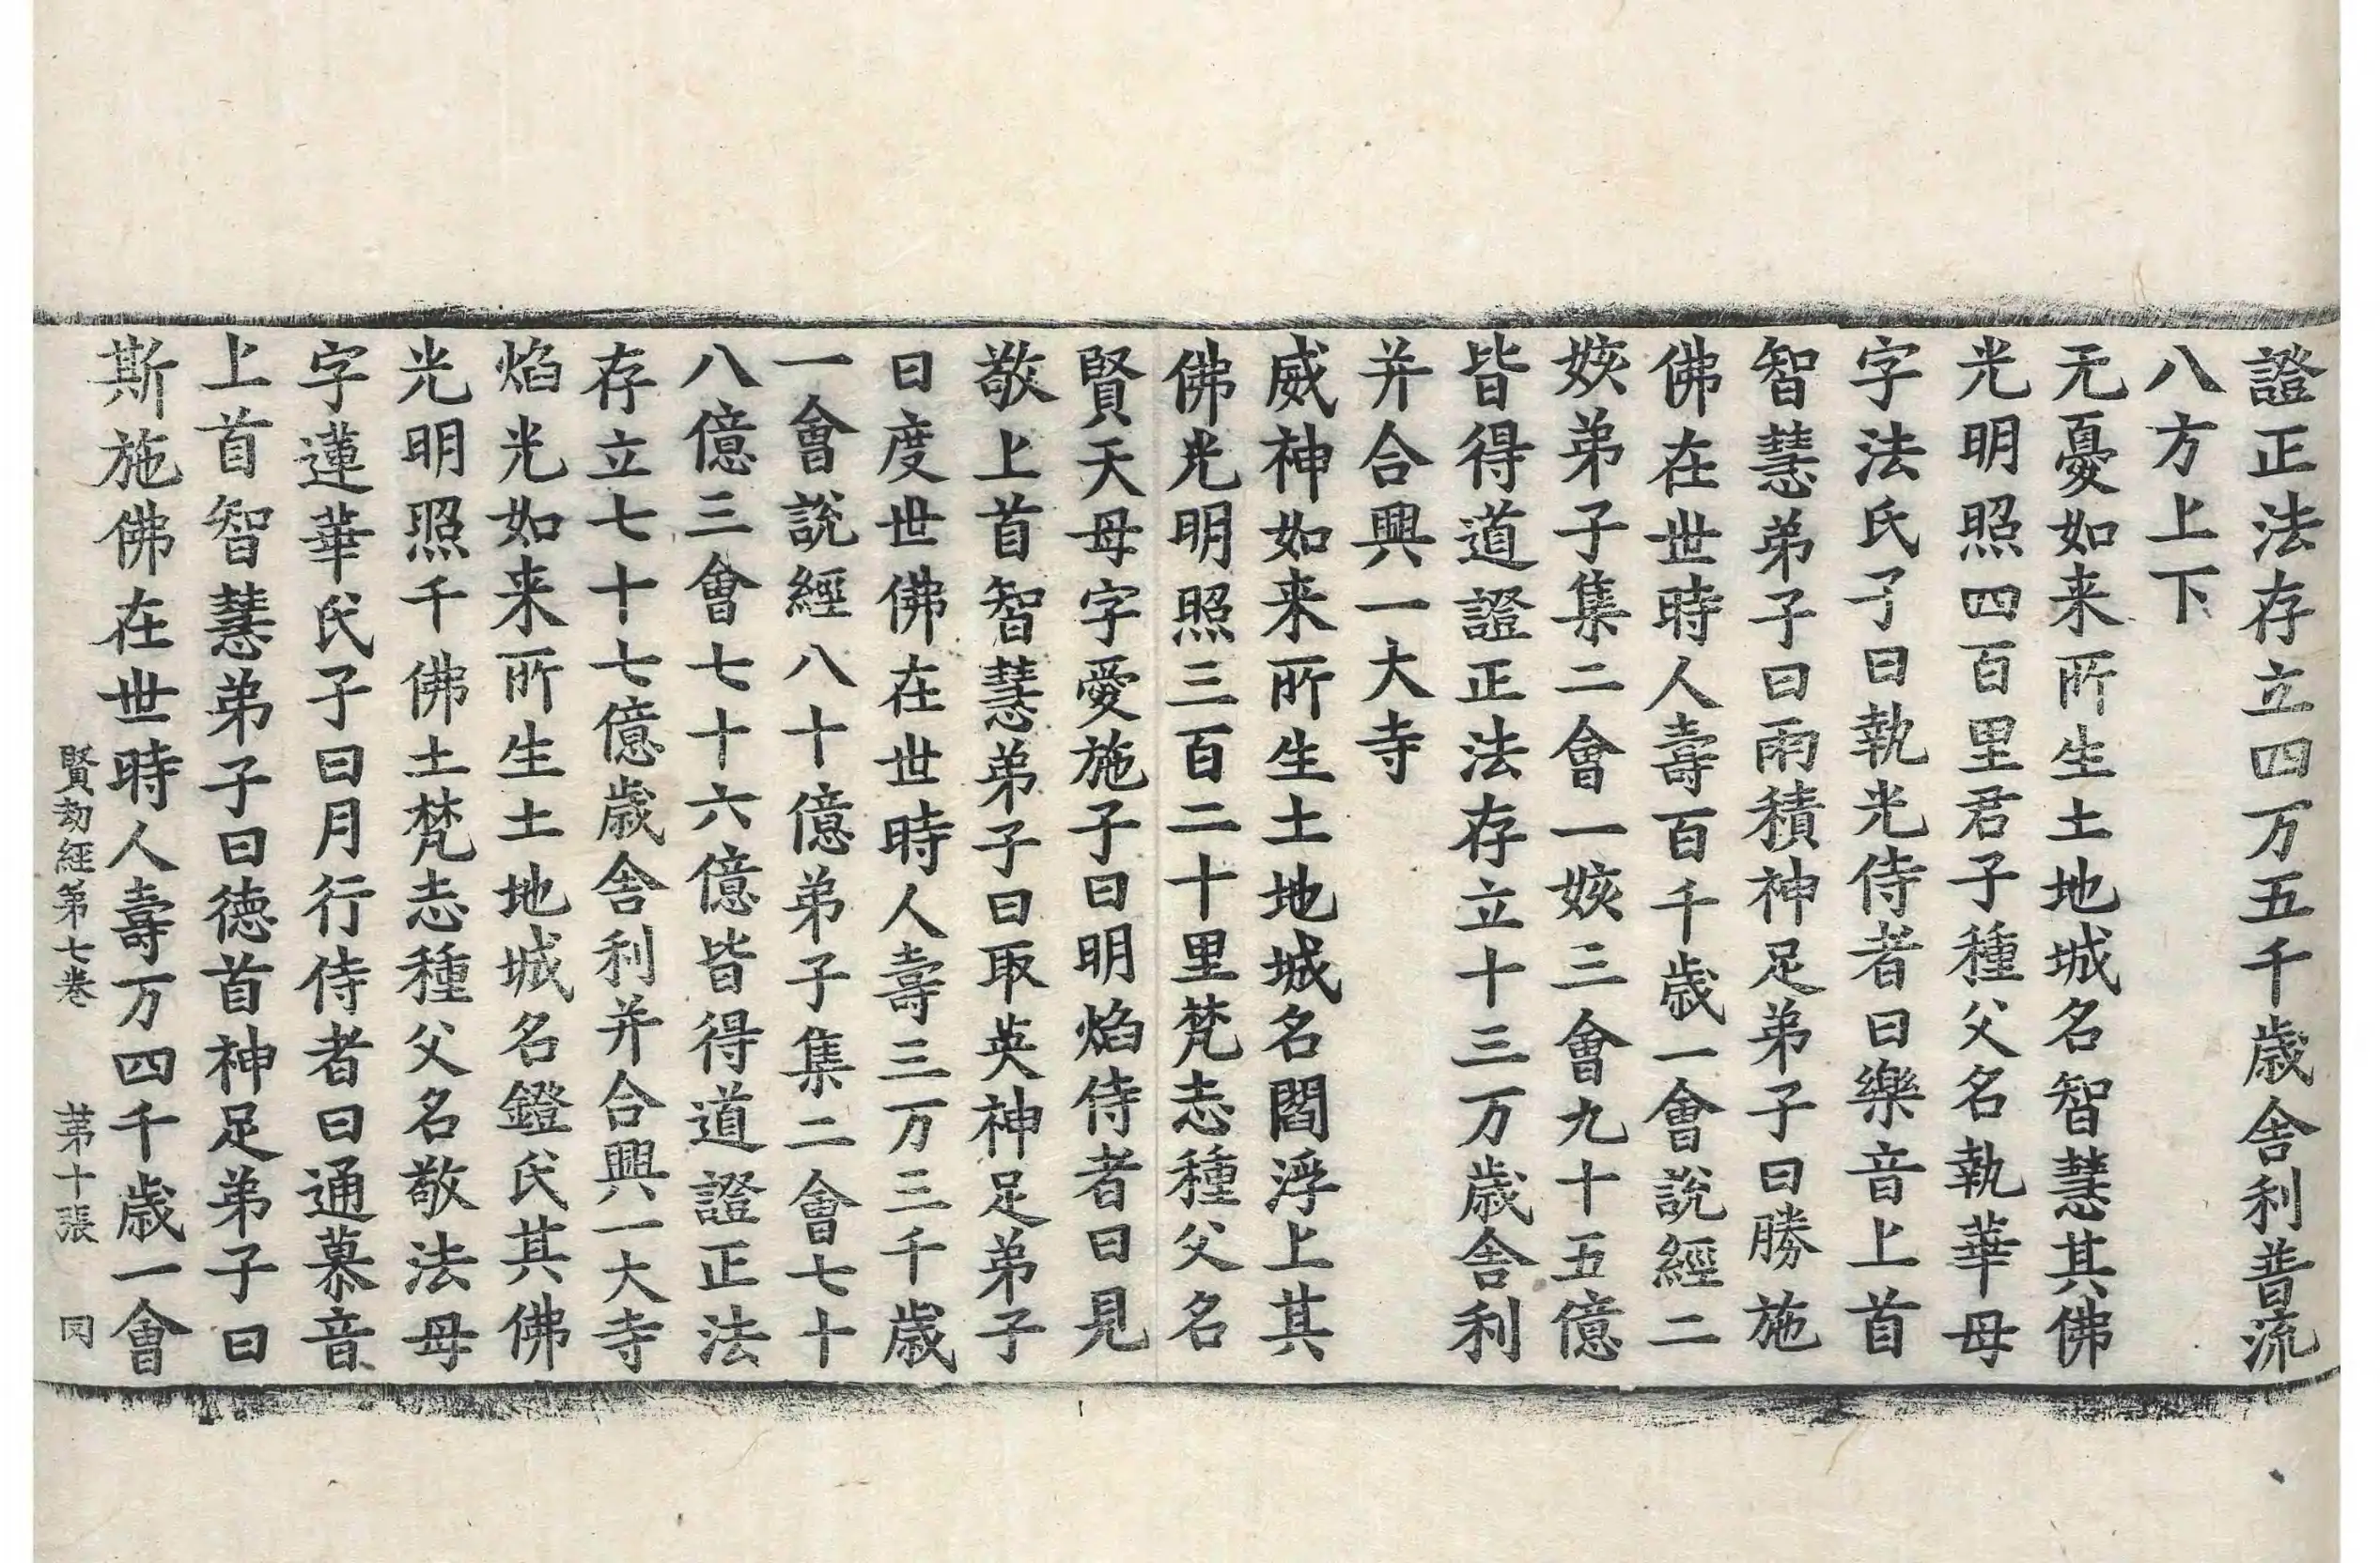 證正法存立四万五千歲舍利普流
八方上下
无憂如来所生土地城名智慧其佛
光明照四百里君子種父名執華母
字法氏子曰執光侍者曰樂音上首
智慧弟子曰雨積神足弟子曰勝施
佛在世時人壽百千歲一會說經二
姟弟子集二會一姟三會九十五億
皆得道證正法存立十三万歲舍利
并合興一大寺
威神如来所生土地城名閻浮上其
佛光明照三百二十里梵志種父名
賢天母字愛施子曰明焰侍者曰見
敬上首智慧弟子曰取英神足弟子
曰度世佛在世時人壽三万三千歲
一會說經八十億弟子集二會七十
八億三會七十六億皆得道證正法
存立七十七億歲舍利并合興一大寺
焰光如来所生土地城名鐙氏其佛
光明照千佛土梵志種父名敬法母
字蓮華氏子曰月行侍者曰通慕音
上首智慧弟子曰德首神足弟子曰
斯施佛在世時人壽万四千歲一會
賢劫經第七卷 第十張 罔